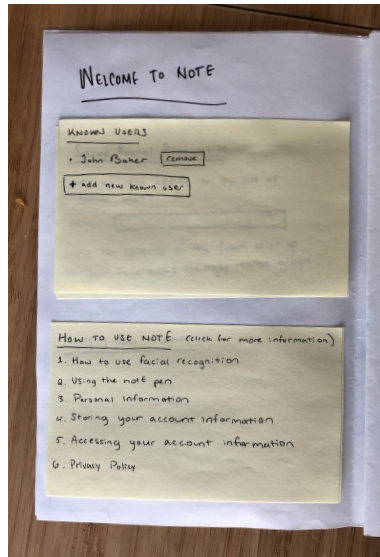 WELCOME TO NOTE
KNOWN USERS
• John Baker remove
+ add new known user
HOW TO USE NOTE (click for more information)
1. How to use facial recognition
2. Using the note pen
3. Personal Information
4. Storing your account information
5. Accessing your account information
6. Privacy Policy